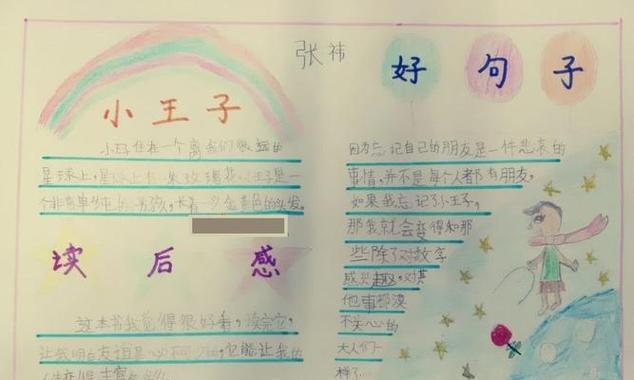 张祎
小王子
小王子住在一个离我们很远的
星球上,星球上有一朵玫瑰花,小王子是一
个非常单纯的男孩,长着一头金黄色的头发。
读后感
这本书我觉得很好看,读完它,
让我明白友谊是必不可少的,它能让我的
好句子
因为忘记自己的朋友是一件悲哀的
事情,并不是每个人都有朋友,
如果我忘记了小王子,
那我就会变得和那
些除了对数字
感兴趣,对其
他事都漠
不关心的
大人们一
样了…